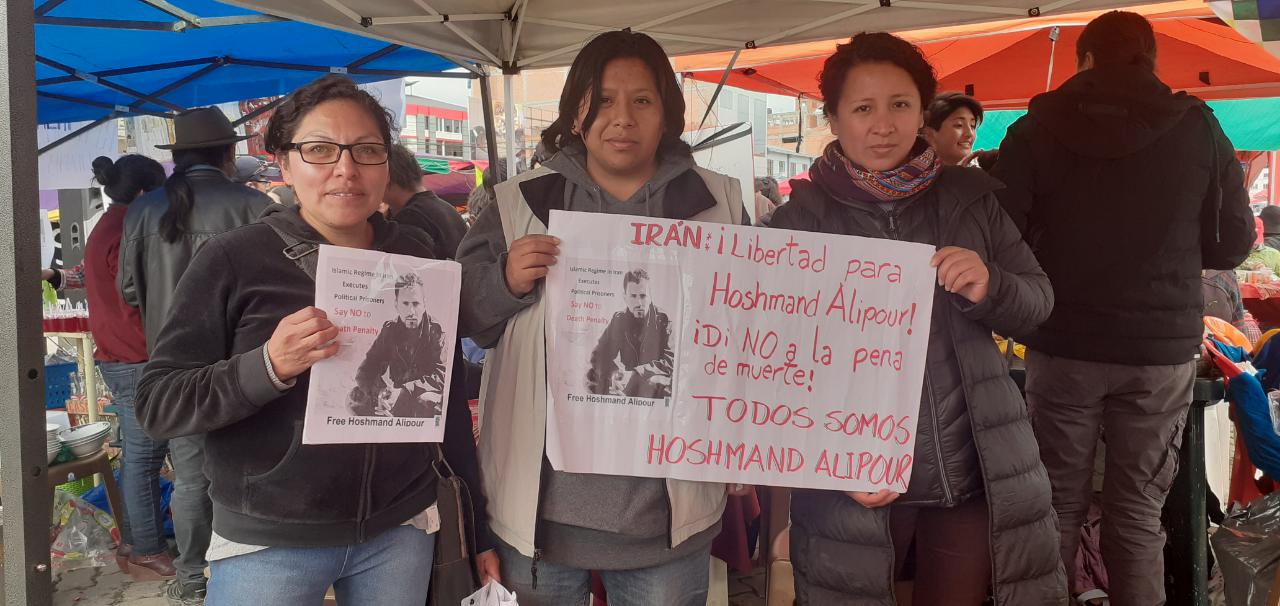 Islamic Regime in Iran
Executes
Political Prisoners
Say NO to
Death Penalty
Free Hoshmand Alipour
Islamic Regime in Iran
Executes
Political Prisoners
Say NO to
Death Penalty
Free Hoshmand Alipour
IRÁN: ¡Libertad para
Hoshmand Alipour!
¡Di NO a la pena
de muerte!
TODOS SOMOS
HOSHMAND ALIPOUR